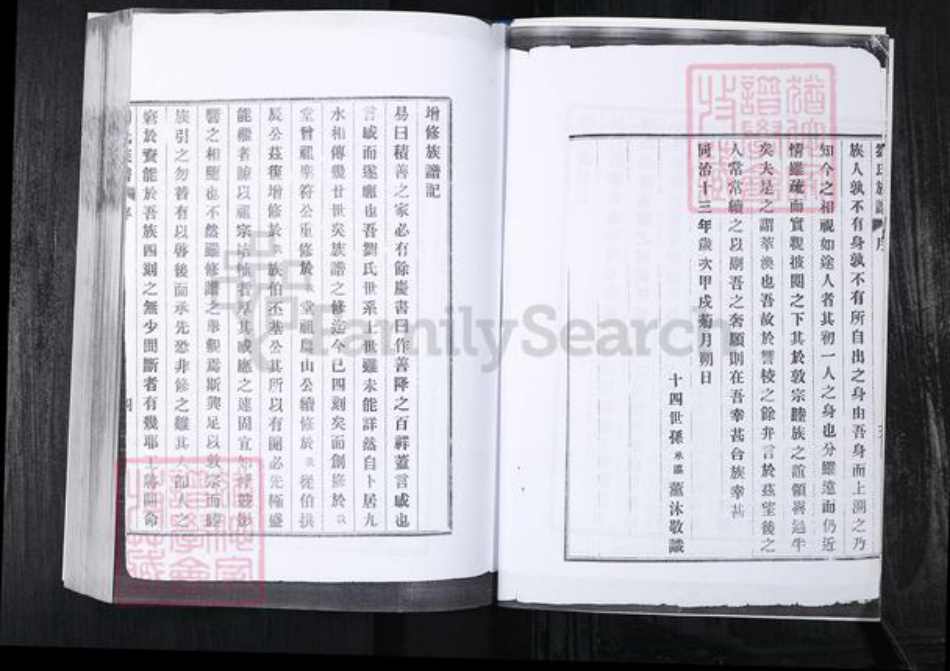 劉氏族譜 序
族人孰不有身孰不有所自出之身由吾身而上溯之乃
知今之相視如途人者其初一人之身也分雖遠而仍近
情雖疏而實親披閱之下其於敦宗睦族之誼領喜過半
矣夫是之謂萃渙也吾故於讐校之餘弁言於茲望後之
人常常續之以副吾之奢願則在吾幸甚台族幸甚
同治十三年歲次甲戌菊月朔日
十四世孫 薰沐敬識
增修族譜記
易曰積善之家必有餘慶書曰作善降之百祥蓋言感也
言感而遂應也吾劉氏世系上世雖未能詳然自卜居九
水相傳幾廿世矣族譜之修迄今已四刻矣而創修於我
堂曾祖 符公重修於我堂祖 山公續修於我從伯
辰公茲復增修於我族伯丕基公其所以有開必先極盛
能繼者 以祖宗培植者厚其感應之速固宜如桴鼓影
響之相應也不然譜修譜之舉觀焉斯興足以敦宗而睦
族引之勿替有以啓後而承先恐非修之難其人卽人之
於賫能於吾族四刻之無少間斷者有幾耶 命
FamilySearch